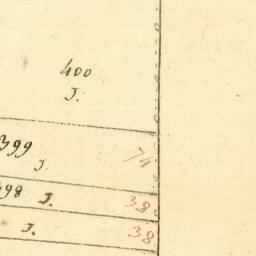 400
J.
399 74
J.
398 J. 38
J. 38